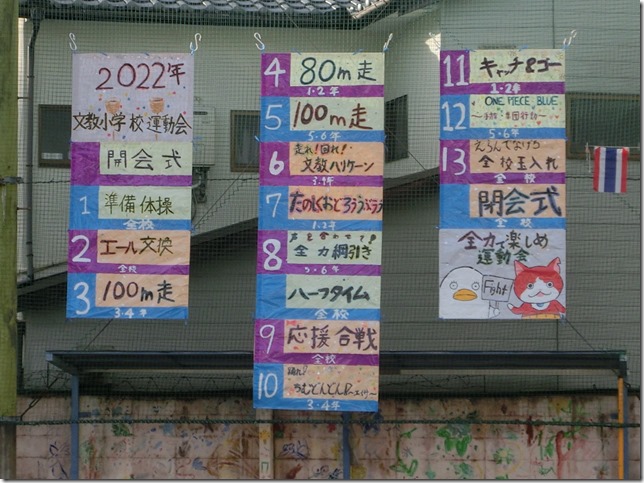 2022年
文教小学校運動会
開会式
1 準備体操
全校
2 エール交換
全校
3 100m走
3・4年
4 80m走
1・2年
5 100m走
5・6年
6 走れ!回れ!
文教ハリケーン
3・4年
7 たのしくおどろう
1・2年
8 声を合わせて!
全力綱引き
5・6年
ハーフタイム
全校
9 応援合戦
全校
10 踊れ!
3・4年
11 キャッチ&ゴー
1・2年
12 ONE PIECE BLUE
5・6年
13 えらんでなげろ
全校玉入れ
全校
閉会式
全校
全力で楽しめ
運動会
Fight